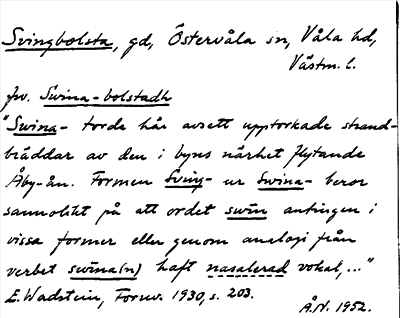 Svingbolsta, gd, Östervåla sn, Våla hd,
Västm. l.
fsv. Swina-bolstadh
"Swina- torde här avsett upptorkade strand-
bräddar av den i byns närhet flytande
Åby-ån. Formen Sving- ur Swina- beror
sannolikt på att ordet swin antingen i
vissa former eller genom analogi från
verbet swina(n) haft nasalerad vokal,..."
E. Wadstein, Fornv. 1930, s. 203.
Å.N. 1952.